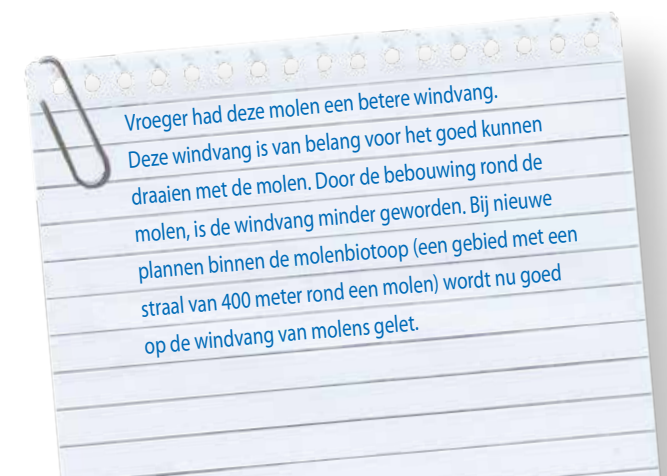 Vroeger had deze molen een betere windvang.
Deze windvang is van belang voor het goed kunnen
draaien met de molen. Door de bebouwing rond de
molen, is de windvang minder geworden. Bij nieuwe
plannen binnen de molenbiotoop (een gebied met een
straal van 400 meter rond een molen) wordt nu goed
op de windvang van molens gelet.